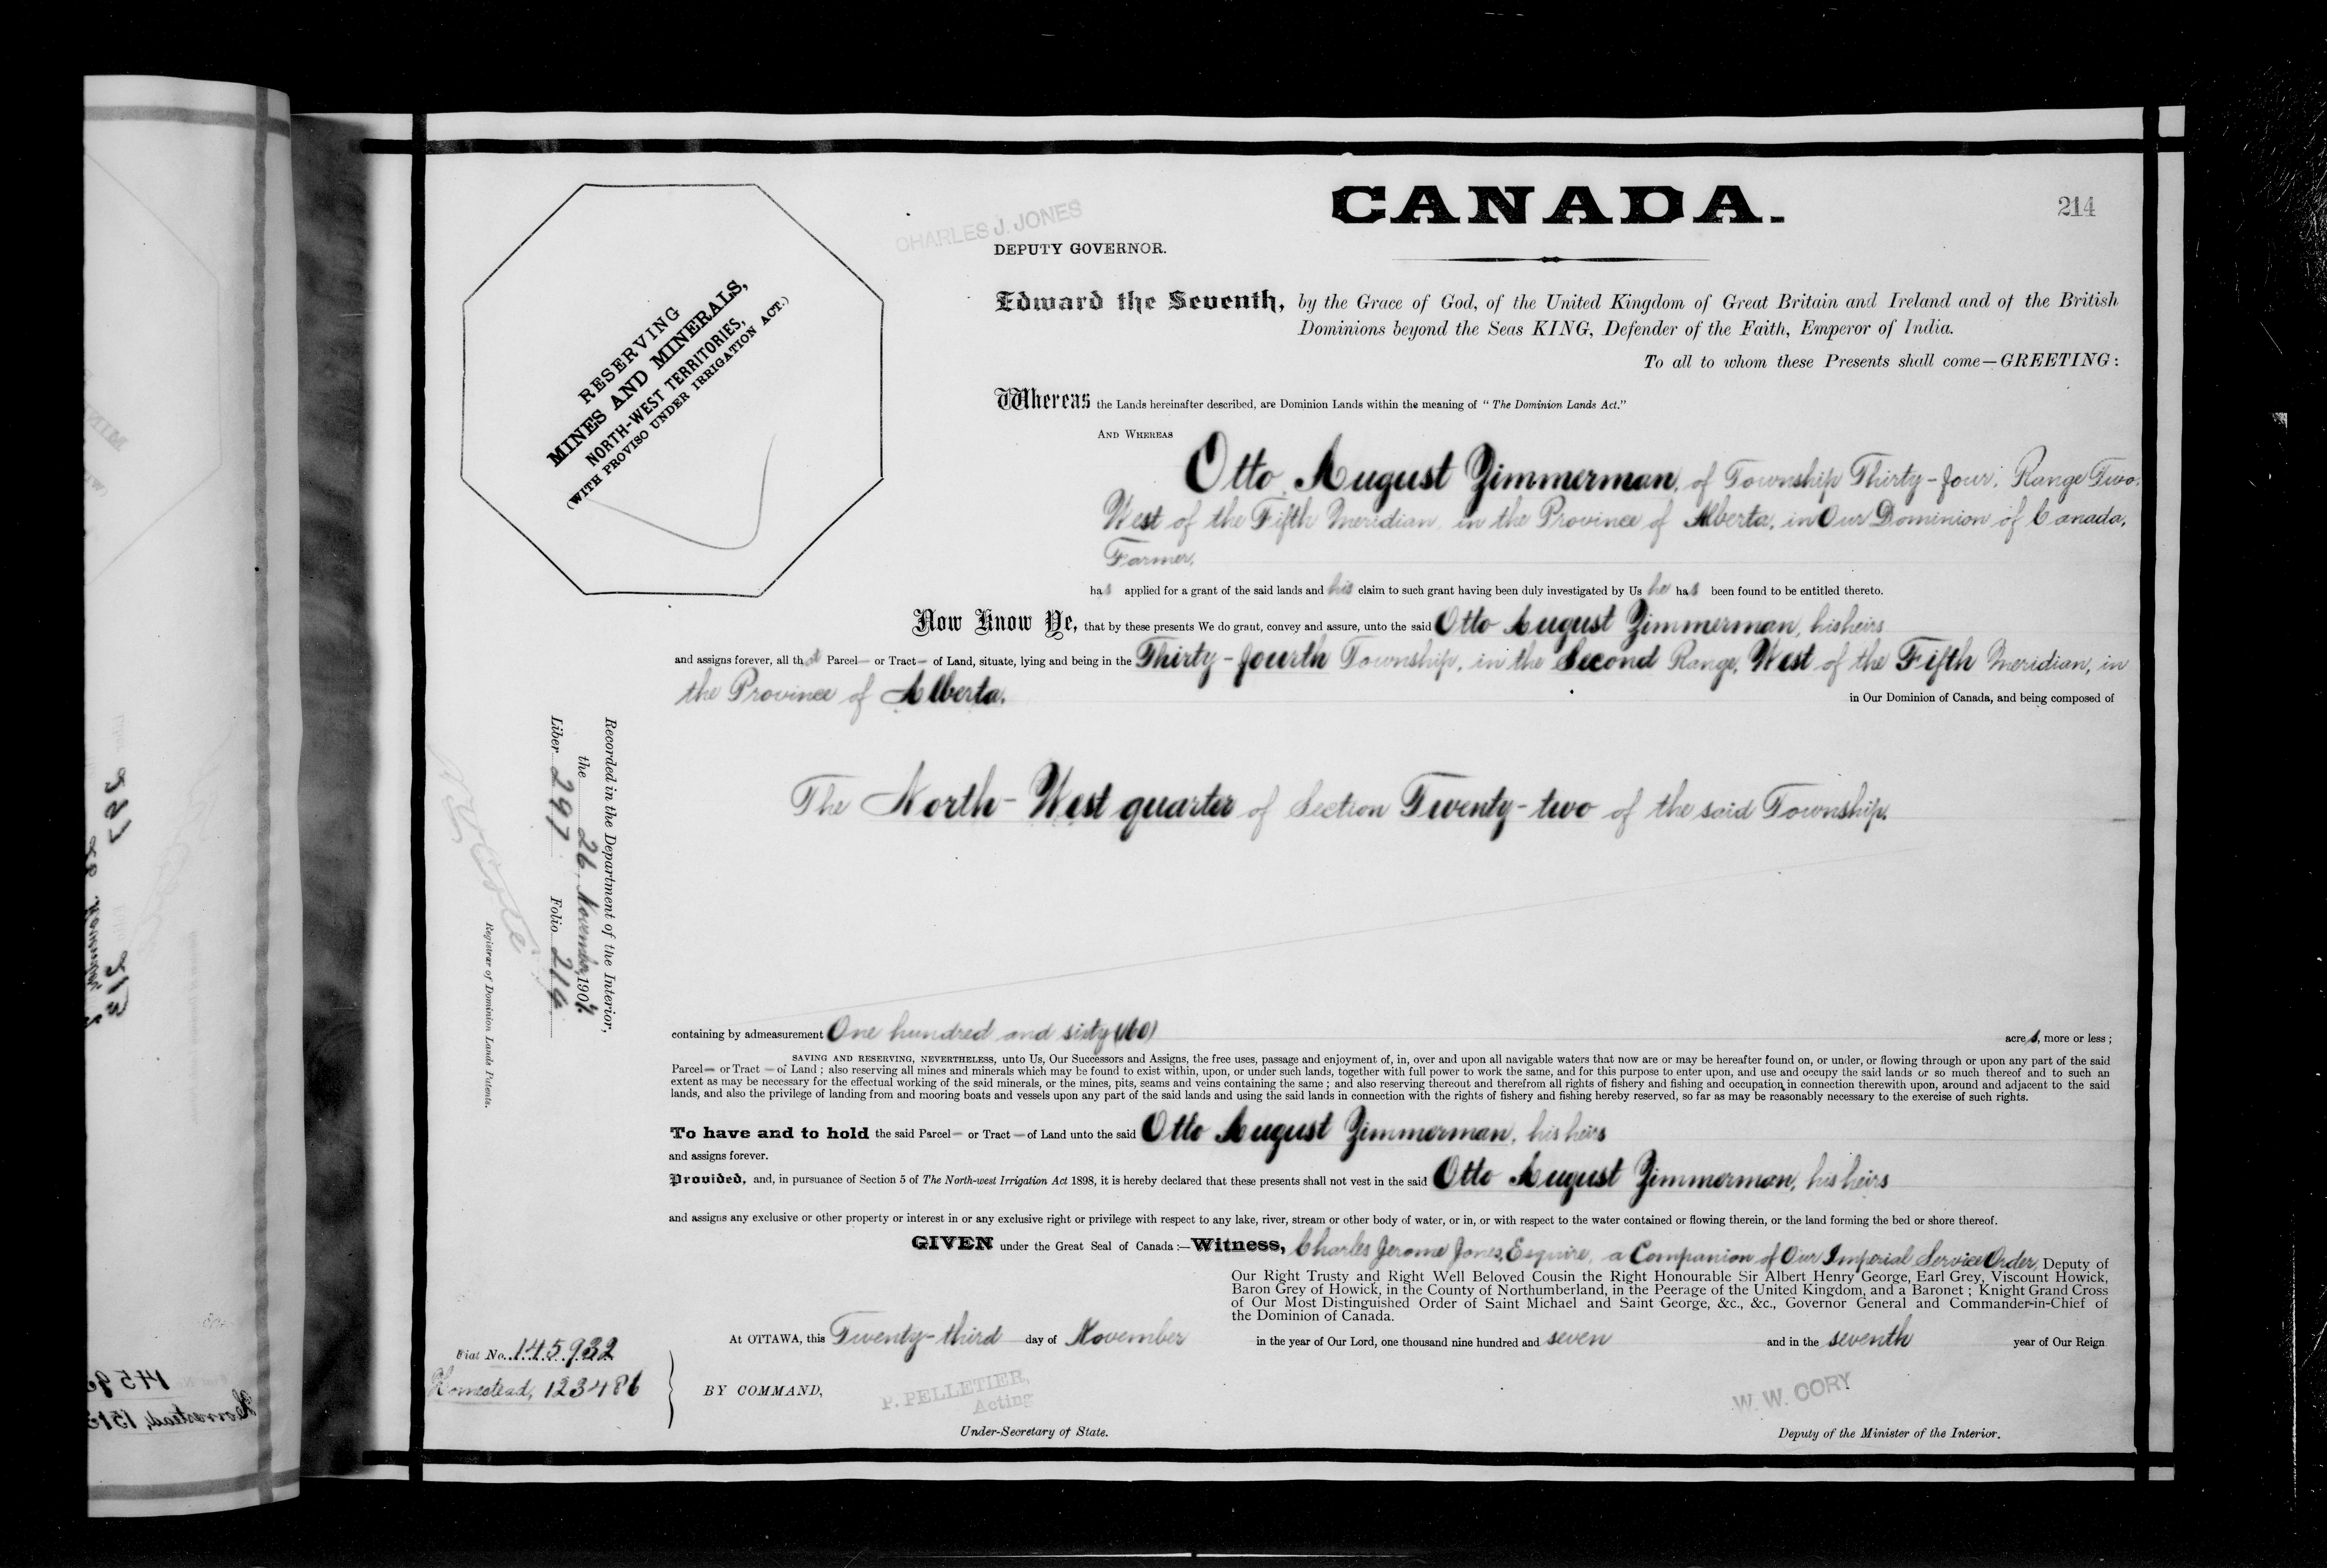 CANADA.
214
CHARLES J. JONES
DEPUTY GOVERNOR.
RESERVING
MINES AND MINERALS,
NORTH-WEST TERRITORIES,
(WITH PROVISO UNDER IRRIGATION ACT.)
Edward the Seventh, by the Grace of God, of the United Kingdom of Great Britain and Ireland and of the British
Dominions beyond the Seas KING, Defender of the Faith, Emperor of India.
To all to whom these Presents shall come—GREETING:
Whereas the Lands hereinafter described, are Dominion Lands within the meaning of "The Dominion Lands Act."
AND WHEREAS
Otto August Zimmerman, of Township Thirty-four, Range Two,
West of the Fifth Meridian, in the Province of Alberta, in Our Dominion of Canada,
Farmer,
has applied for a grant of the said lands and his claim to such grant having been duly investigated by Us he has been found to be entitled thereto.
Now Know Ye, that by these presents We do grant, convey and assure, unto the said Otto August Zimmerman, his heirs
and assigns forever, all that Parcel— or Tract— of Land, situate, lying and being in the Thirty-fourth Township, in the Second Range, West of the Fifth Meridian, in
the Province of Alberta,
in Our Dominion of Canada, and being composed of
The North-West quarter of Section Twenty-two of the said Township.
Recorded in the Department of the Interior,
the 26 November, 1907
Liber 297 Folio 214
Registrar of Dominion Lands Patents.
containing by admeasurement One hundred and sixty (160) acres, more or less;
SAVING AND RESERVING, NEVERTHELESS, unto Us, Our Successors and Assigns, the free uses, passage and enjoyment of, in, over and upon all navigable waters that now are or may be hereafter found on, or under, or flowing through or upon any part of the said
Parcel— or Tract— of Land; also reserving all mines and minerals which may be found to exist within, upon, or under such lands, together with full power to work the same, and for this purpose to enter upon, and use and occupy the said lands or so much thereof and to such an
extent as may be necessary for the effectual working of the said minerals, or the mines, pits, seams and veins containing the same; and also reserving thereout and therefrom all rights of fishery and fishing and occupation in connection therewith upon, around and adjacent to the said
lands, and also the privilege of landing from and mooring boats and vessels upon any part of the said lands and using the said lands in connection with the rights of fishery and fishing hereby reserved, so far as may be reasonably necessary to the exercise of such rights.
To have and to hold the said Parcel— or Tract— of Land unto the said Otto August Zimmerman, his heirs
and assigns forever.
Provided, and, in pursuance of Section 5 of The North-west Irrigation Act 1898, it is hereby declared that these presents shall not vest in the said Otto August Zimmerman, his heirs
and assigns any exclusive or other property or interest in or any exclusive right or privilege with respect to any lake, river, stream or other body of water, or in, or with respect to the water contained or flowing therein, or the land forming the bed or shore thereof.
GIVEN under the Great Seal of Canada:—Witness, Charles Jerome Jones, Esquire, a Companion of Our Imperial Service Order, Deputy of
Our Right Trusty and Right Well Beloved Cousin the Right Honourable Sir Albert Henry George, Earl Grey, Viscount Howick,
Baron Grey of Howick, in the County of Northumberland, in the Peerage of the United Kingdom, and a Baronet; Knight Grand Cross
of Our Most Distinguished Order of Saint Michael and Saint George, &c., &c., Governor General and Commander-in-Chief of
the Dominion of Canada.
At OTTAWA, this Twenty-third day of November in the year of Our Lord, one thousand nine hundred and seven and in the seventh year of Our Reign
Fiat No. 145932
Homestead, 123486
BY COMMAND,
P. PELLETIER,
Acting
Under-Secretary of State.
W. W. CORY
Deputy of the Minister of the Interior.